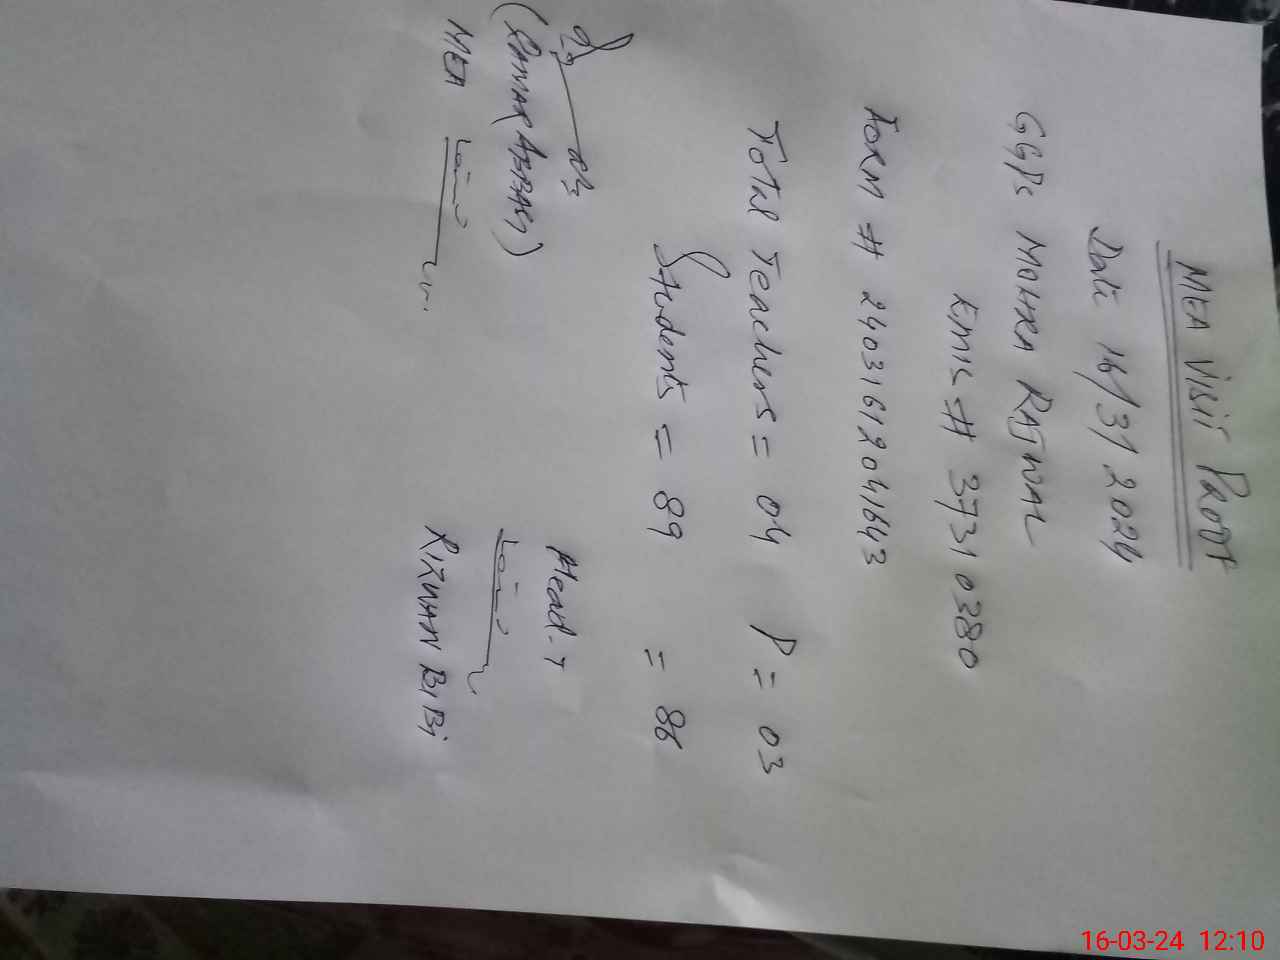 MEA Visit Proof
Date 16/3/2024
GGPS MOHRA RAJWAL
EMIS # 37310380
FORM # 24031612041643
Total Teachers = 04 P = 03
Students = 89 = 86
(QAMAR ABBAS)
MEA
Head. T
RIZWAN BIBI
16-03-24 12:10